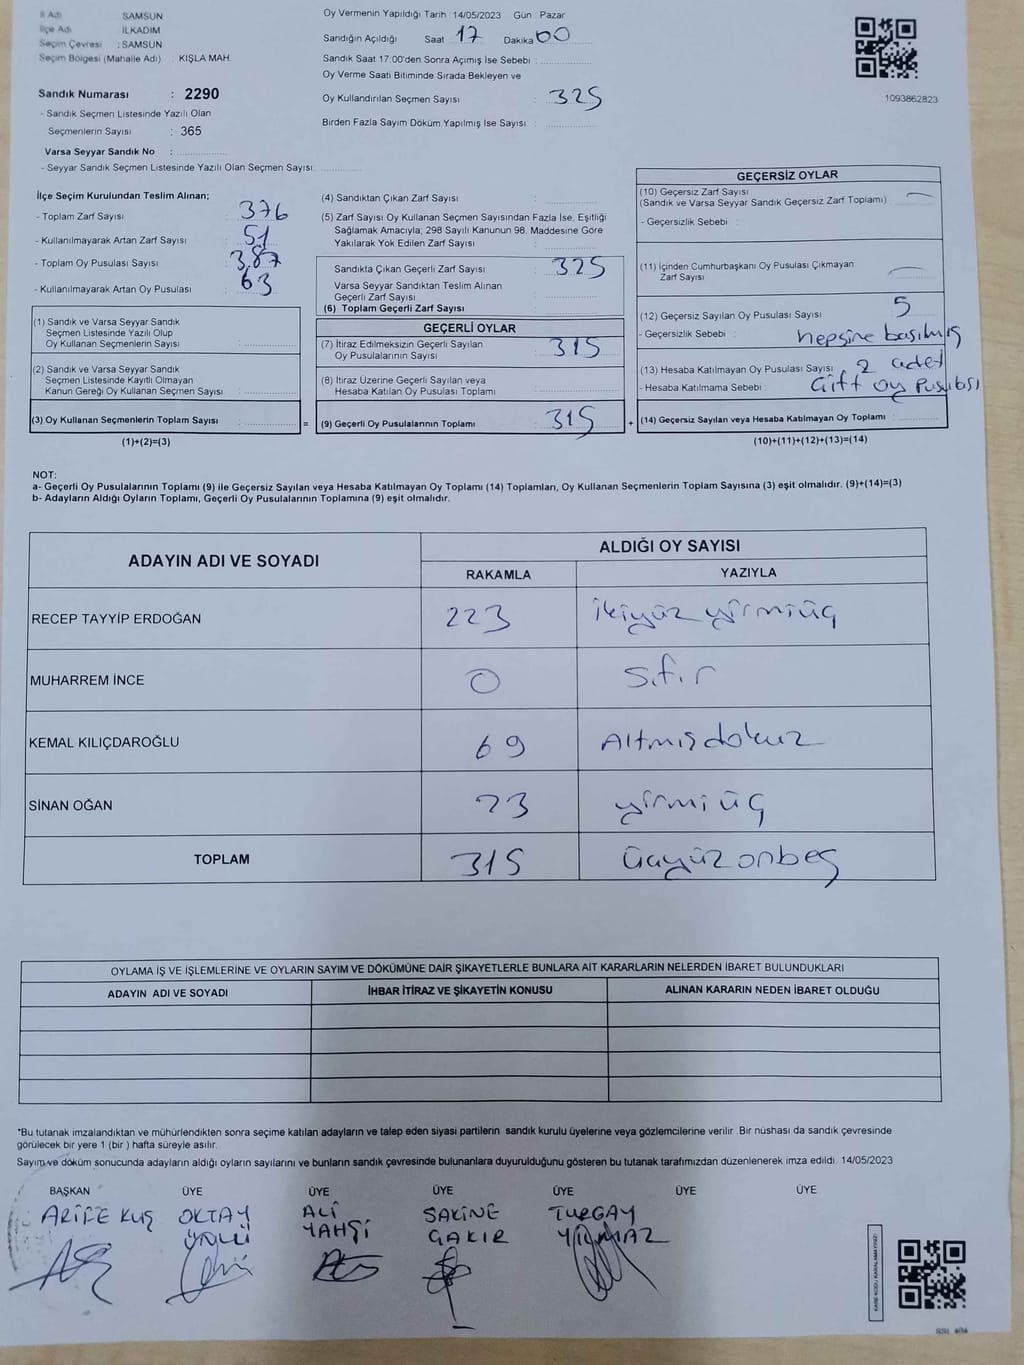 İl Adı SAMSUN
İlçe Adı İLKADIM
Seçim Çevresi : SAMSUN
Seçim Bölgesi (Mahalle Adı) : KIŞLA MAH.
Sandık Numarası : 2290
- Sandık Seçmen Listesinde Yazılı Olan
Seçmenlerin Sayısı : 365
Varsa Seyyar Sandık No :
- Seyyar Sandık Seçmen Listesinde Yazılı Olan Seçmen Sayısı:
Oy Vermenin Yapıldığı Tarih : 14/05/2023 Gün : Pazar
Sandığın Açıldığı Saat 17 Dakika 00
Sandık Saat 17:00'den Sonra Açımış İse Sebebi :
Oy Verme Saati Bitiminde Sırada Bekleyen ve
Oy Kullandırılan Seçmen Sayısı : 325
Birden Fazla Sayım Döküm Yapılmış İse Sayısı :
1093862823
İlçe Seçim Kurulundan Teslim Alınan;
- Toplam Zarf Sayısı : 376
- Kullanılmayarak Artan Zarf Sayısı : 51
- Toplam Oy Pusulası Sayısı : 387
- Kullanılmayarak Artan Oy Pusulası : 63
(1) Sandık ve Varsa Seyyar Sandık
Seçmen Listesinde Yazılı Olup
Oy Kullanan Seçmenlerin Sayısı :
(2) Sandık ve Varsa Seyyar Sandık
Seçmen Listesinde Kayıtlı Olmayan
Kanun Gereği Oy Kullanan Seçmen Sayısı :
(3) Oy Kullanan Seçmenlerin Toplam Sayısı : =
(1)+(2)=(3)
(4) Sandıktan Çıkan Zarf Sayısı :
(5) Zarf Sayısı Oy Kullanan Seçmen Sayısından Fazla İse, Eşitliği
Sağlamak Amacıyla; 298 Sayılı Kanunun 98. Maddesine Göre
Yakılarak Yok Edilen Zarf Sayısı :
Sandıkta Çıkan Geçerli Zarf Sayısı : 325
Varsa Seyyar Sandıktan Teslim Alınan
Geçerli Zarf Sayısı :
(6) Toplam Geçerli Zarf Sayısı :
GEÇERLİ OYLAR
(7) İtiraz Edilmeksizin Geçerli Sayılan
Oy Pusulalarının Sayısı : 315
(8) İtiraz Üzerine Geçerli Sayılan veya
Hesaba Katılan Oy Pusulası Toplamı :
(9) Geçerli Oy Pusulalarının Toplamı : 315 +
GEÇERSİZ OYLAR
(10) Geçersiz Zarf Sayısı
(Sandık ve Varsa Seyyar Sandık Geçersiz Zarf Toplamı) : —
- Geçersizlik Sebebi :
(11) İçinden Cumhurbaşkanı Oy Pusulası Çıkmayan
Zarf Sayısı : —
(12) Geçersiz Sayılan Oy Pusulası Sayısı : 5
- Geçersizlik Sebebi : hepsine basılmış
(13) Hesaba Katılmayan Oy Pusulası Sayısı : 2 adet
- Hesaba Katılmama Sebebi : Çift oy Pusulası
(14) Geçersiz Sayılan veya Hesaba Katılmayan Oy Toplamı :
(10)+(11)+(12)+(13)=(14)
NOT:
a- Geçerli Oy Pusulalarının Toplamı (9) ile Geçersiz Sayılan veya Hesaba Katılmayan Oy Toplamı (14) Toplamları, Oy Kullanan Seçmenlerin Toplam Sayısına (3) eşit olmalıdır. (9)+(14)=(3)
b- Adayların Aldığı Oyların Toplamı, Geçerli Oy Pusulalarının Toplamına (9) eşit olmalıdır.
ADAYIN ADI VE SOYADI ALDIĞI OY SAYISI
RAKAMLA YAZIYLA
RECEP TAYYİP ERDOĞAN 223 ikiyüz yirmiüç
MUHARREM İNCE 0 sıfır
KEMAL KILIÇDAROĞLU 69 Altmışdokuz
SİNAN OĞAN 23 yirmi üç
TOPLAM 315 üçyüz onbeş
OYLAMA İŞ VE İŞLEMLERİNE VE OYLARIN SAYIM VE DÖKÜMÜNE DAİR ŞİKAYETLERLE BUNLARA AİT KARARLARIN NELERDEN İBARET BULUNDUKLARI
ADAYIN ADI VE SOYADI İHBAR İTİRAZ VE ŞİKAYETİN KONUSU ALINAN KARARIN NEDEN İBARET OLDUĞU
*Bu tutanak imzalandıktan ve mühürlendikten sonra seçime katılan adayların ve talep eden siyasi partilerin sandık kurulu üyelerine veya gözlemcilerine verilir. Bir nüshası da sandık çevresinde
görülecek bir yere 1 (bir ) hafta süreyle asılır.
Sayım ve döküm sonucunda adayların aldığı oyların sayılarını ve bunların sandık çevresinde bulunanlara duyurulduğunu gösteren bu tutanak tarafımızdan düzenlenerek imza edildi. 14/05/2023
BAŞKAN ÜYE ÜYE ÜYE ÜYE ÜYE ÜYE
ARİFE KUŞ OKTAY ALİ SAKİNE TURGAY
ÜNLÜ YAHŞİ ÇAKIR YILMAZ
KARE KODU KARALAMAYINIZ!